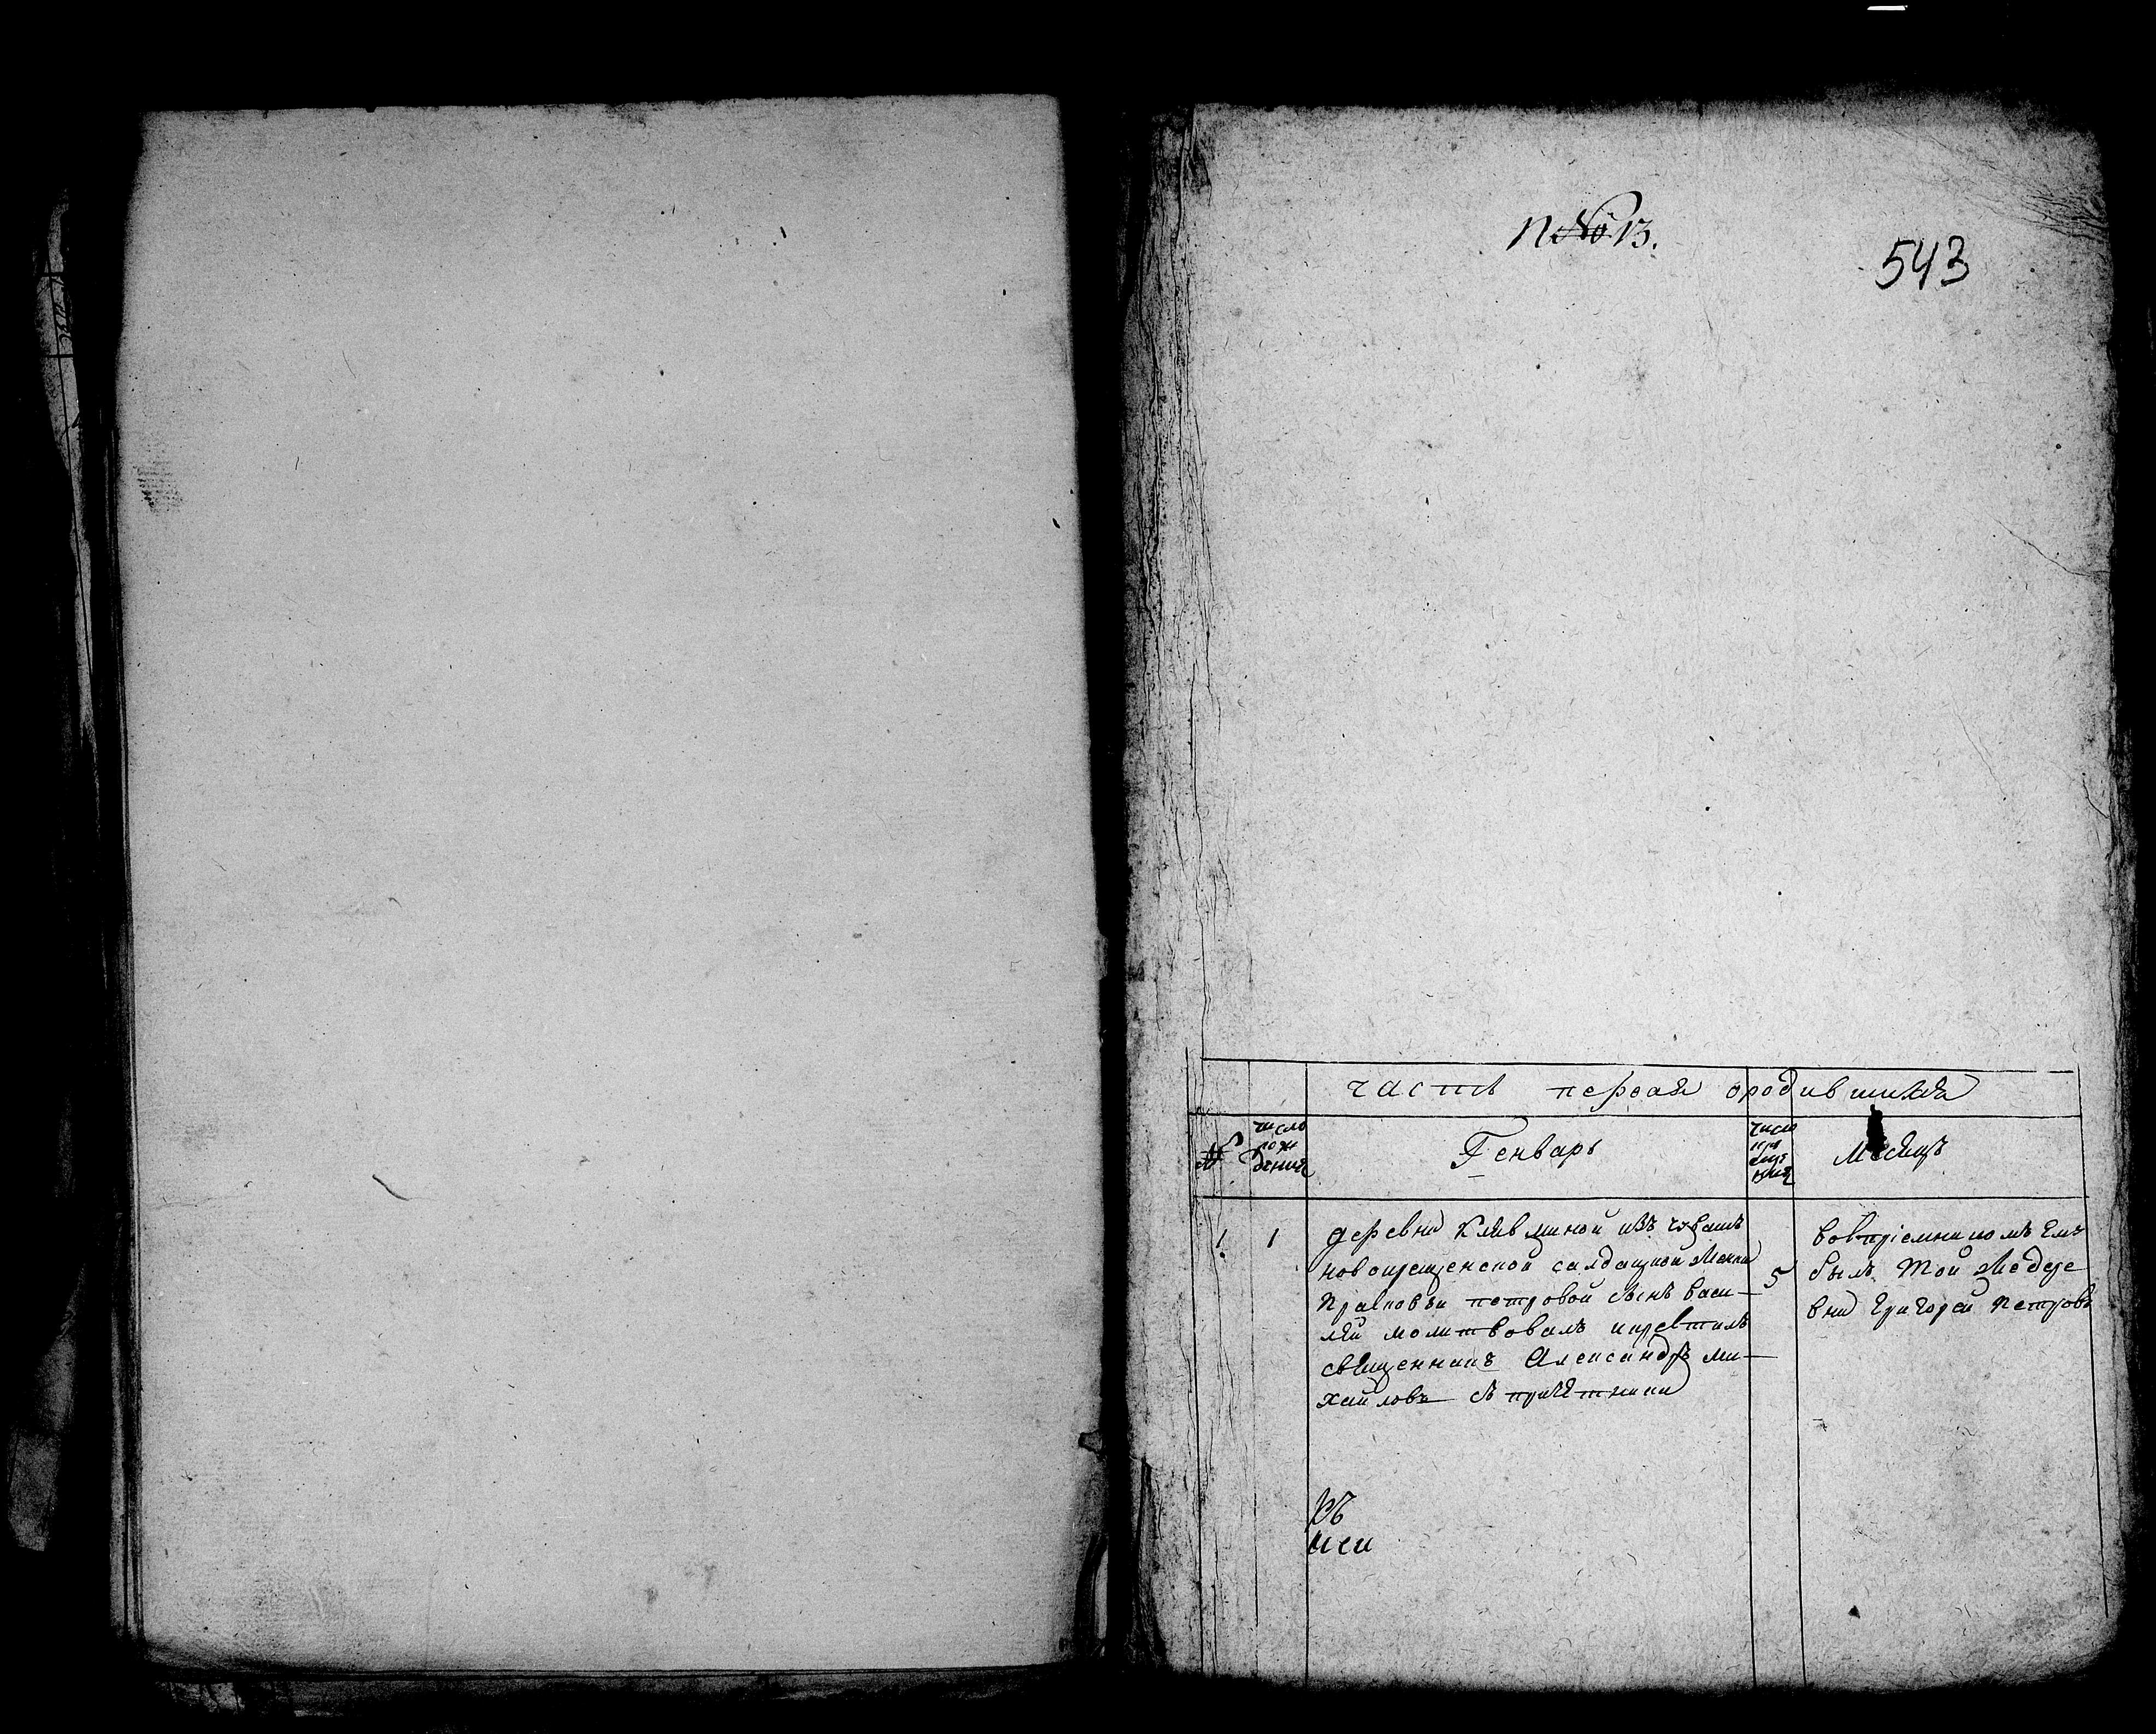 № 13.
543
часть первая ородившихся
№ число рож дения Генварь число кре щения Месяцъ
1. 1 деревни Клявлиной изъ чювашъ
новокрещенской салдацкой Женки
Прасковьи петровой сынъ васи-
лей молитвовалъ икрестилъ
священникъ Александръ ми-
хайловъ съ причетники
5 восприемникомъ Емъ
былъ Той Же дере
вни григорей петровъ
ръ
иси